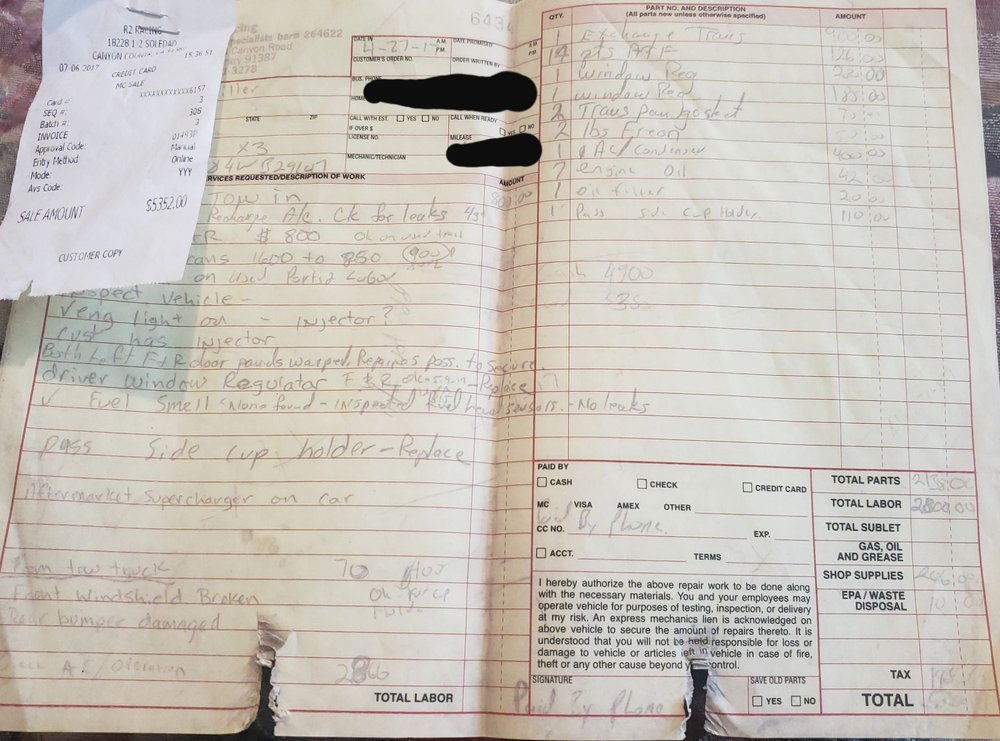 R2 RACING
18228 1/2 SOLEDAD
CANYON
07-06-2017 15:36:51
CREDIT CARD
MC SALE
Card #: XXXXXXXXXXXX6157
SEQ #: 3
Batch #: 308
INVOICE 3
Approval Code: 01493P
Entry Method: Manual
Mode: Online
Avs Code: YYY
SALE AMOUNT $5352.00
CUSTOMER COPY
cing
ecialists bar# 264622
Canyon Road
ry 91387
-3278
6434
DATE IN
4-27-17
A.M.
P.M.
DATE PROMISED
A.M.
P.M.
CUSTOMER'S ORDER NO.
ORDER WRITTEN BY
BUS. PHONE
HOME
STATE ZIP
CALL WITH EST. YES NO
IF OVER $
CALL WHEN READY
YES NO
LICENSE NO.
MILEAGE
MECHANIC/TECHNICIAN
X3
SERVICES REQUESTED/DESCRIPTION OF WORK AMOUNT
Tow in 800:00
Recharge A/C. Ck for leaks
$ 800 ok on used trans
1600 to 850
on used Parts & Labor
Inspect Vehicle -
V eng light on - Injector?
Cust has Injector
Both Left F & R door panels warped. Repair as poss. to secure.
driver window Regulator F & R - Replace
✓ Fuel Smell - None found - Inspected Fuel level sensors. - No leaks
Pass Side cup holder - Replace
Aftermarket Supercharger on car
From tow truck 70
Front Windshield Broken
Rear bumper damaged
TOTAL LABOR
QTY. PART NO. AND DESCRIPTION
(All parts new unless otherwise specified) AMOUNT
1 Exchange Trans 900:00
pts ATF 126:00
1 Window Reg
1 window Reg 185:00
2 Trans pan gasket
2 lbs Freon 50:00
1 AC Condenser 400:00
7 engine Oil 42:00
1 Oil filter 20:00
1 Pass side Cup Holder. 110:00
Cash 4900
PAID BY
CASH CHECK CREDIT CARD
MC VISA AMEX OTHER
CC NO. Paid By Phone EXP.
ACCT. TERMS
I hereby authorize the above repair work to be done along
with the necessary materials. You and your employees may
operate vehicle for purposes of testing, inspection, or delivery
at my risk. An express mechanics lien is acknowledged on
above vehicle to secure the amount of repairs thereto. It is
understood that you will not be held responsible for loss or
damage to vehicle or articles left in vehicle in case of fire,
theft or any other cause beyond your control.
SIGNATURE
Paid By Phone
SAVE OLD PARTS
YES NO
TOTAL PARTS
TOTAL LABOR 2800:00
TOTAL SUBLET
GAS, OIL
AND GREASE
SHOP SUPPLIES
EPA / WASTE
DISPOSAL 10 00
TAX
TOTAL